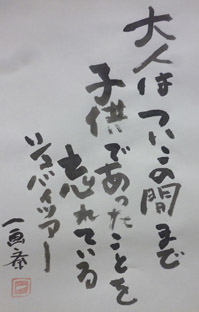 大人はついこの間まで
子供であったことを
忘れている
シュバイツァー
一画斎